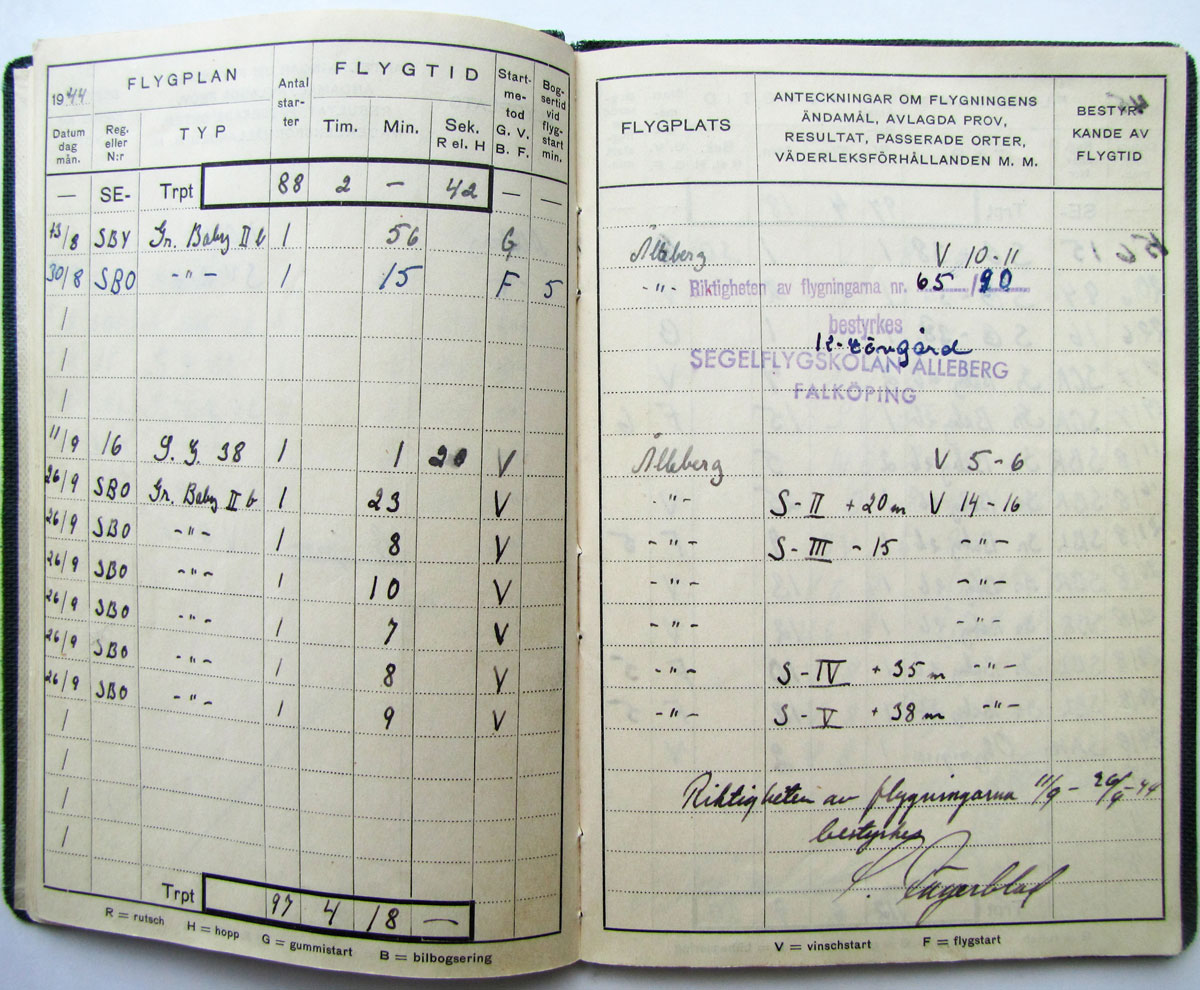 1944
FLYGPLAN
Antal star-ter
FLYGTID
Start-me-tod G. V. B. F.
Bog-sertid vid flyg-start min.
Datum dag mån.
Reg. eller N:r
TYP
Tim.
Min.
Sek. R el. H
— SE- Trpt 88 2 — 42 — —
13/8 SBY Gr. Baby II b 1 56 G
30/8 SBO -"- 1 15 F 5
/
/
/
11/9 16 G. G. 38 1 1 20 V
26/9 SBO Gr. Baby II b 1 23 V
26/9 SBO -"- 1 8 V
26/9 SBO -"- 1 10 V
26/9 SBO -"- 1 7 V
26/9 SBO -"- 1 8 V
26/9 SBO -"- 1 9 V
/
/
/
/
Trpt 97 4 18 —
R = rutsch H = hopp G = gummistart B = bilbogsering
FLYGPLATS
ANTECKNINGAR OM FLYGNINGENS
ÄNDAMÅL, AVLAGDA PROV,
RESULTAT, PASSERADE ORTER,
VÄDERLEKSFÖRHÅLLANDEN M. M.
BESTYR-
KANDE AV
FLYGTID
Ålleberg V 10-11
-"- Riktigheten av flygningarna nr. 65-/90
bestyrkes
SEGELFLYGSKOLAN ÅLLEBERG
FALKÖPING
Ålleberg V 5-6
-"- S-II +20m V 14-16
-"- S-III -15 -"-
-"- -"-
-"- -"-
-"- S-IV +35m -"-
-"- S-V +38m -"-
Riktigheten av flygningarna 11/9 - 26/9-44
bestyrkes
V = vinschstart F = flygstart